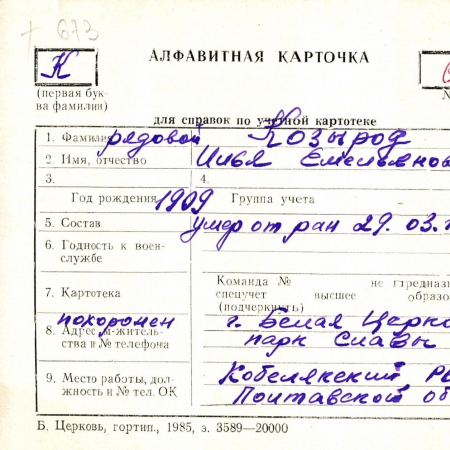 + 673
К
АЛФАВИТНАЯ КАРТОЧКА
(первая бук-
ва фамилии)
для справок по учетной картотеке
1. Фамилия рядовой Козырод
2. Имя, отчество Илья Емельянов
3. 4.
Год рождения 1909 Группа учета
5. Состав умер от ран 29.03.
6. Годность к воен-
службе
Команда № не предназ
7. Картотека спецучет высшее образо
(подчеркнуть)
похоронен г. Белая Церко
8. Адрес м-житель-
ства и № телефона парк Славы
9. Место работы, дол- Кобелякский
жность и № тел. ОК Полтавской об
Б. Церковь, гортип., 1985, з. 3589—20000